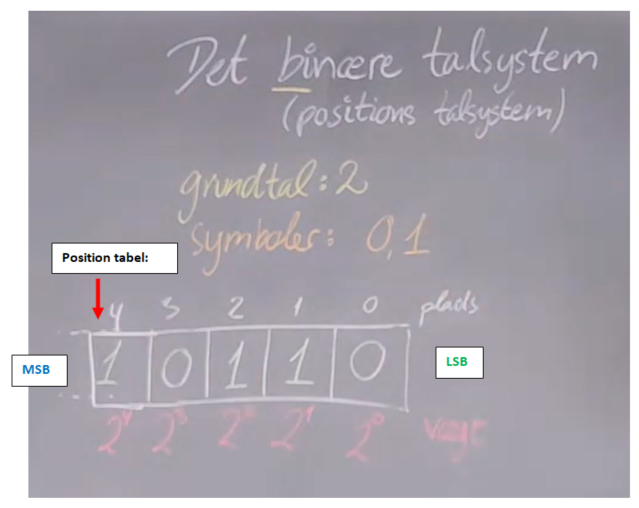 Det binære talsystem
(positions talsystem)
grundtal: 2
symboler: 0,1
Position tabel:
4 3 2 1 0 plads
MSB 1 0 1 1 0 LSB
2⁴ 2³ 2² 2¹ 2⁰ vægt